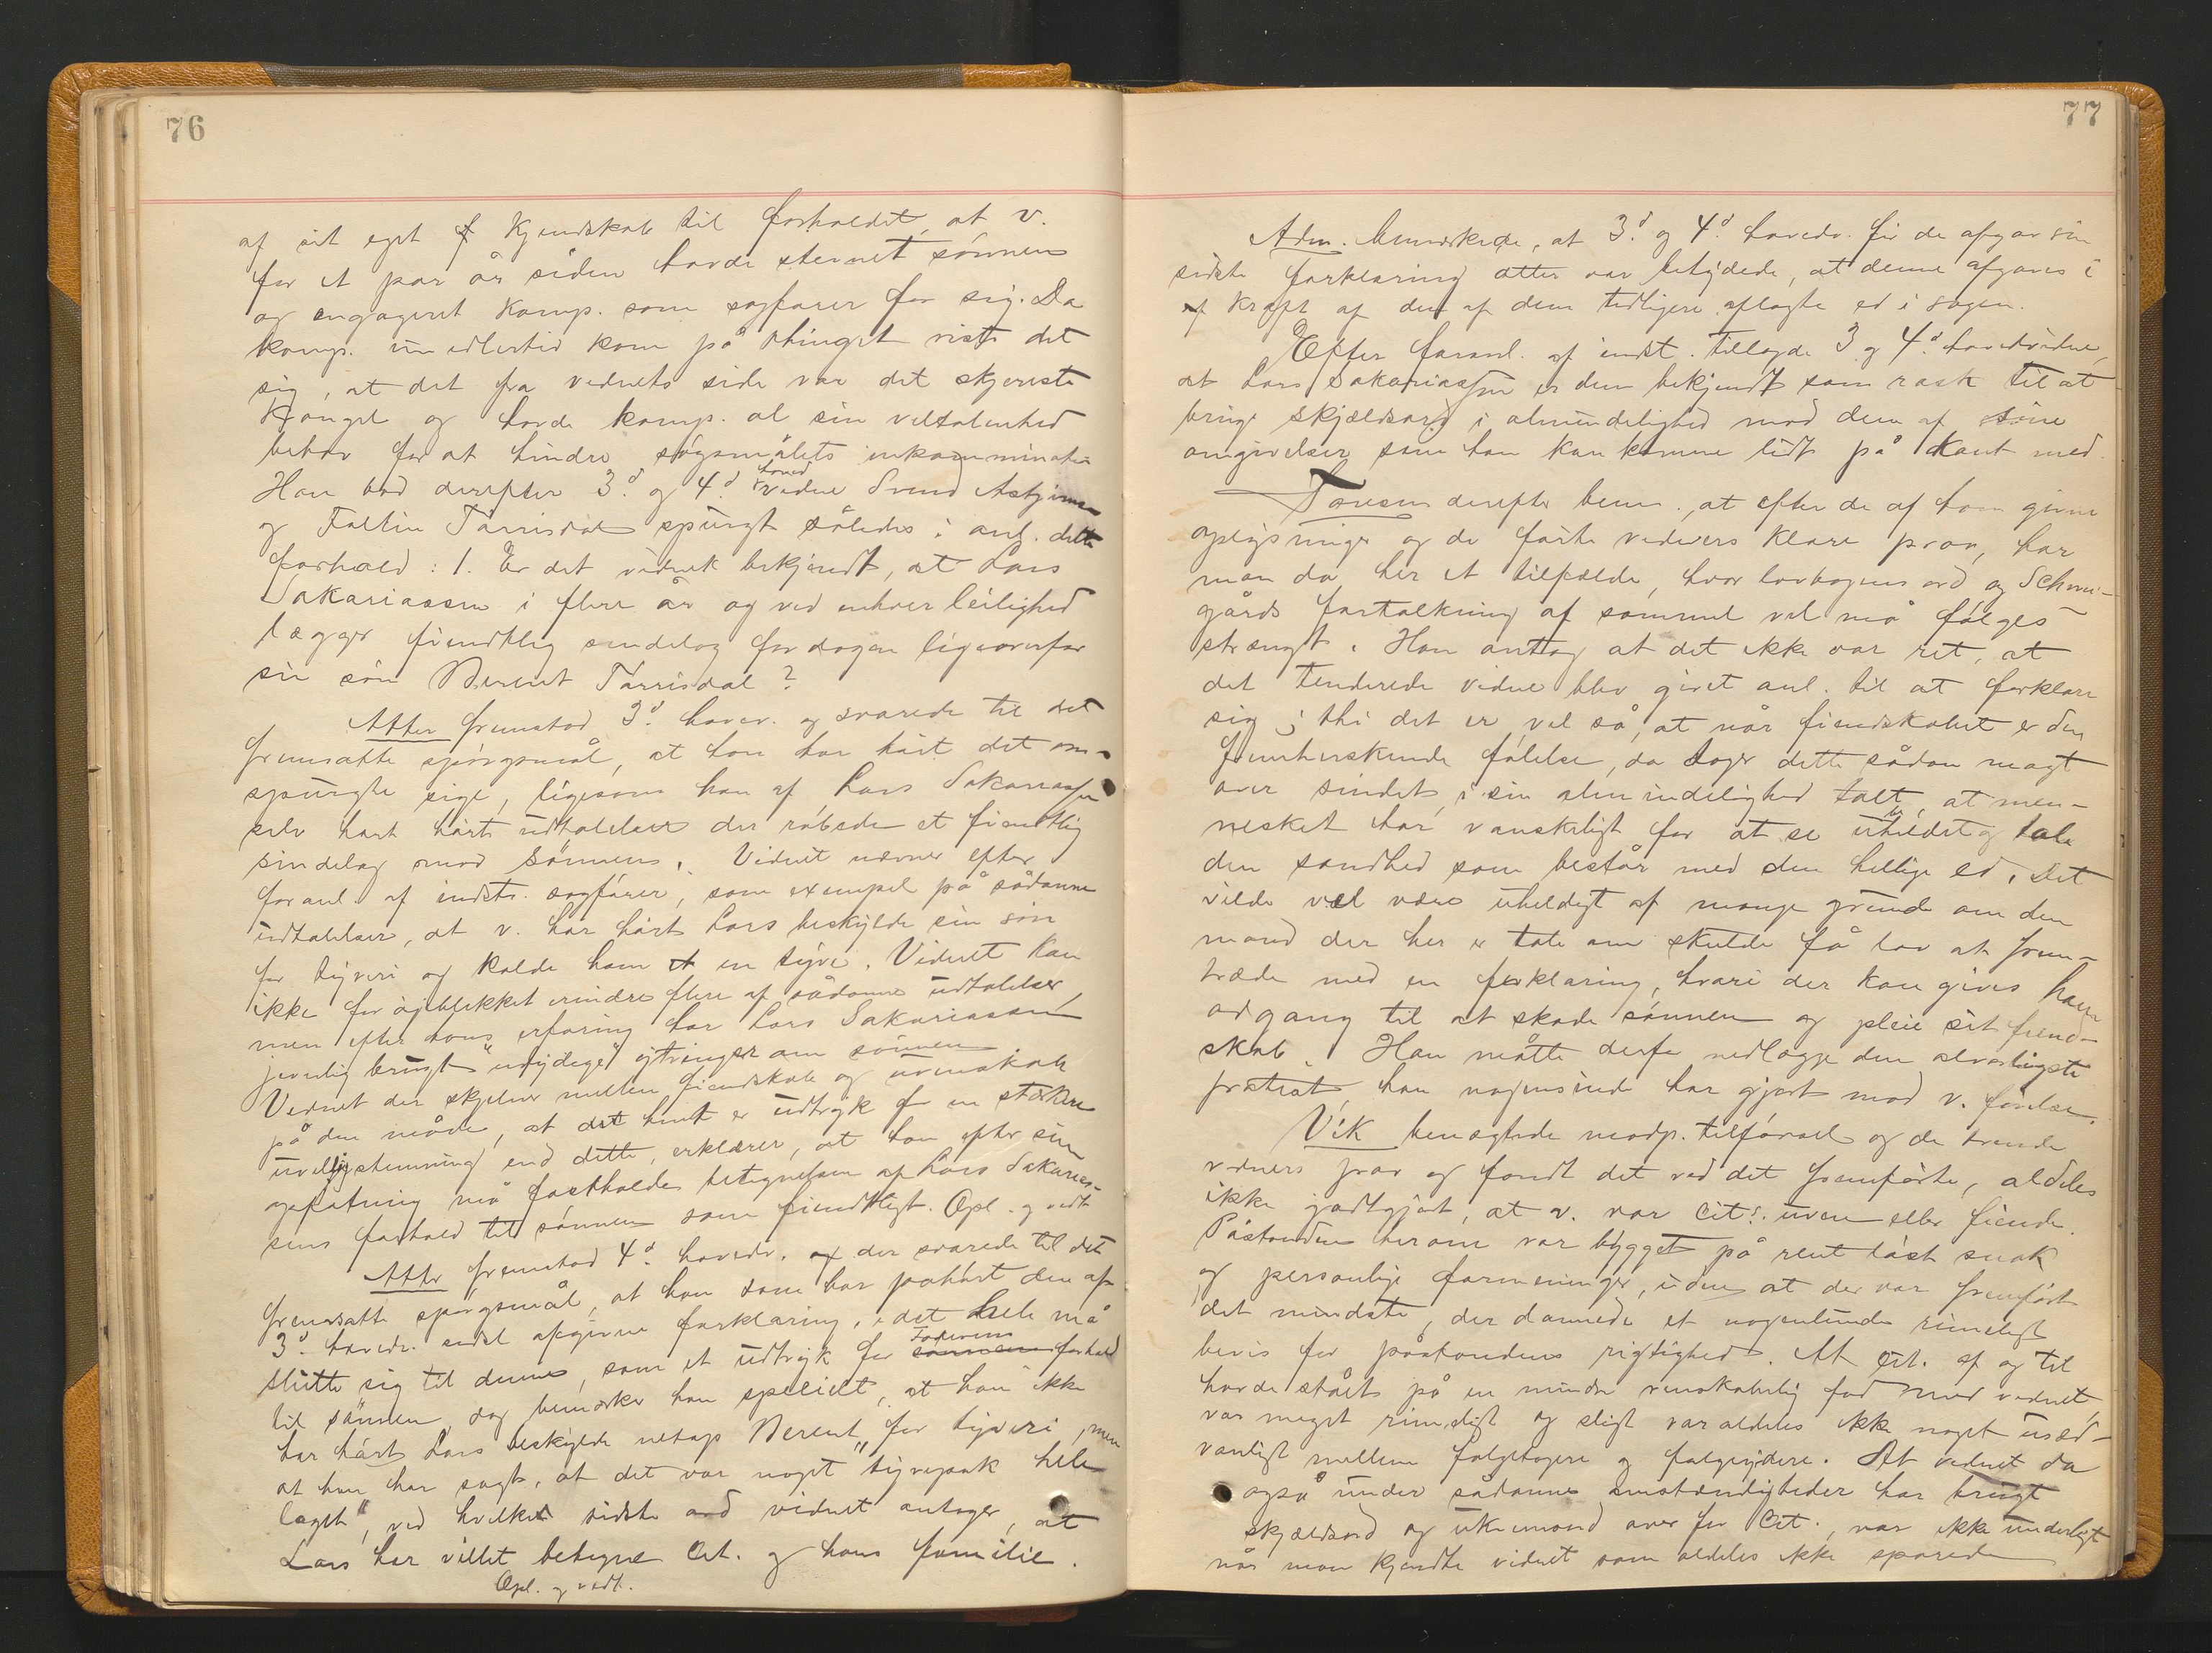 76
af sit eget Kjendskab til forholdet, at v.
for et par år siden havde stevnet sønnen
og engageret komp. som sagfører for sig. Da
komp. imidlertid kom på thinget viste det
sig, at det fra vidnets side var det skjereste
Rangel og havde komp. al sin veltalenhed
behov for at hindre søgsmålets inkammination
Han bad derefter 3d og 4d hovedvidne Svend
og Faltin Tarrisdal spurgt således i anl. dette
forhold: 1. Er det vidnet bekjendt, at Lars
Sakariassen i flere år og ved enhver leilighed
lægger fiendtlig sindelag for dagen ligeoverfor
sin søn Berent Tarrisdal?
Atter fremstod 3d hovedv. og svarede til det
fremsatte spørgsmål, at han har hørt det om-
spurgte sige, ligesom han af Lars Sakariassen
selv har hørt udtalelser der røbede et fiendtlig
sindelag mod sønnen. Vidnet nævner efter
foranl. af indst. sagfører, som exempel på sådanne
udtalelser, at v. har hørt Lars beskylde sin søn
for tyveri og kalde ham en tyv. Vidnet kan
ikke for øjeblikket erindre flere af sådanne udtalelser,
men efter hans erfaring har Lars Sakariassen
jevnlig brugt "unydige" ytringer om sønnen
Vidnet der skjelner mellem fiendskab og uvenskab
på den måde, at det hint er udtryk for en stærkere
uvilligstemning end dette, erklærer, at han efter sin
opfatning må fastholde betegnelsen af Lars Sakarias-
sens forhold til sønnen som fiendtligt. Opl. og vedt.
Atter fremstod 4d hovedv. og der svarede til det
fremsatte spørgsmål, at han som har påhørt den af
3d hovedv. sidst afgivne forklaring, i det hele må
slutte sig til denne, som et udtryk for sønnens Faderens forhold
til sønnen, dog bemærker han specielt, at han ikke
har hørt Lars beskylde netop Berent for tyveri, men
at han har sagt, at det var noget "tyvepak hele
laget", ved hvilket sidste ord vidnet antager, at
Lars har villet betegne Cit. og hans familie.
Opl. og vedt.
77
Adm. bemærkede, at 3d og 4d hovedv. før de afgav sin
sidste forklaring atter var betydede, at denne afgaves i
kraft af den af dem tidligere aflagte ed i sagen.
Efter foranl. af indst. tillagde 3 og 4d hovedvidne,
at Lars Sakariassen er dem bekjendt som rask til at
bruge skjældsord i almindelighed mod dem af sine
omgivelser som han kan komme lidt på kant med.
derefter bem., at efter de af ham givne
oplysninger og de førte vidners klare prov, har
man da her et tilfælde, hvor lovbogens ord og Schwei-
gårds fortolkning af sammel vel må følges
strængt. Han antog at det ikke var ret, at
det tenderede vidne blev givet anl. til at forklare
sig; thi det er vel så, at når fiendskabet er den
fremherskende følelse, da tager dette sådan magt
over sindet, i sin almindelighed talt, at men-
nesket har vanskeligt for at se uhildet og tale
den sandhed som består med den hellige ed. Det
vilde vel være uheldigt af mange grunde om den
mand der her er tale om skulde få lov at frem-
træde med en forklaring, hvori der kan gives ham
adgang til at skade sønnen og pleie sit fiend-
skab. Han måtte derfor nedlægge den alvorligste
protest, han nogensinde har gjort mod v. førelse.
Vik benægtede modp. tilførsel og de trende
vidners prov og fandt det ved det fremførte, aldeles
ikke godtgjort, at v. var Cits. uven eller fiende.
Påstanden herom var bygget på rent løst snak
og personlige formeninger, uden at der var fremført
det mindste, der dannede et nogenlunde rimeligt
bevis for påstandens rigtighed. At Cit. af og til
havde stået på en mindre venskabelig fod med vidnet
var meget rimeligt og sligt var aldeles ikke noget usæd-
vanligt mellem folgetagere og folgeydere. At vidnet da
også under sådanne omstændigheder har brugt
skjældsord og ukvemsord over for Cit., var ikke underligt
når man kjendte vidnet som aldeles ikke sparede